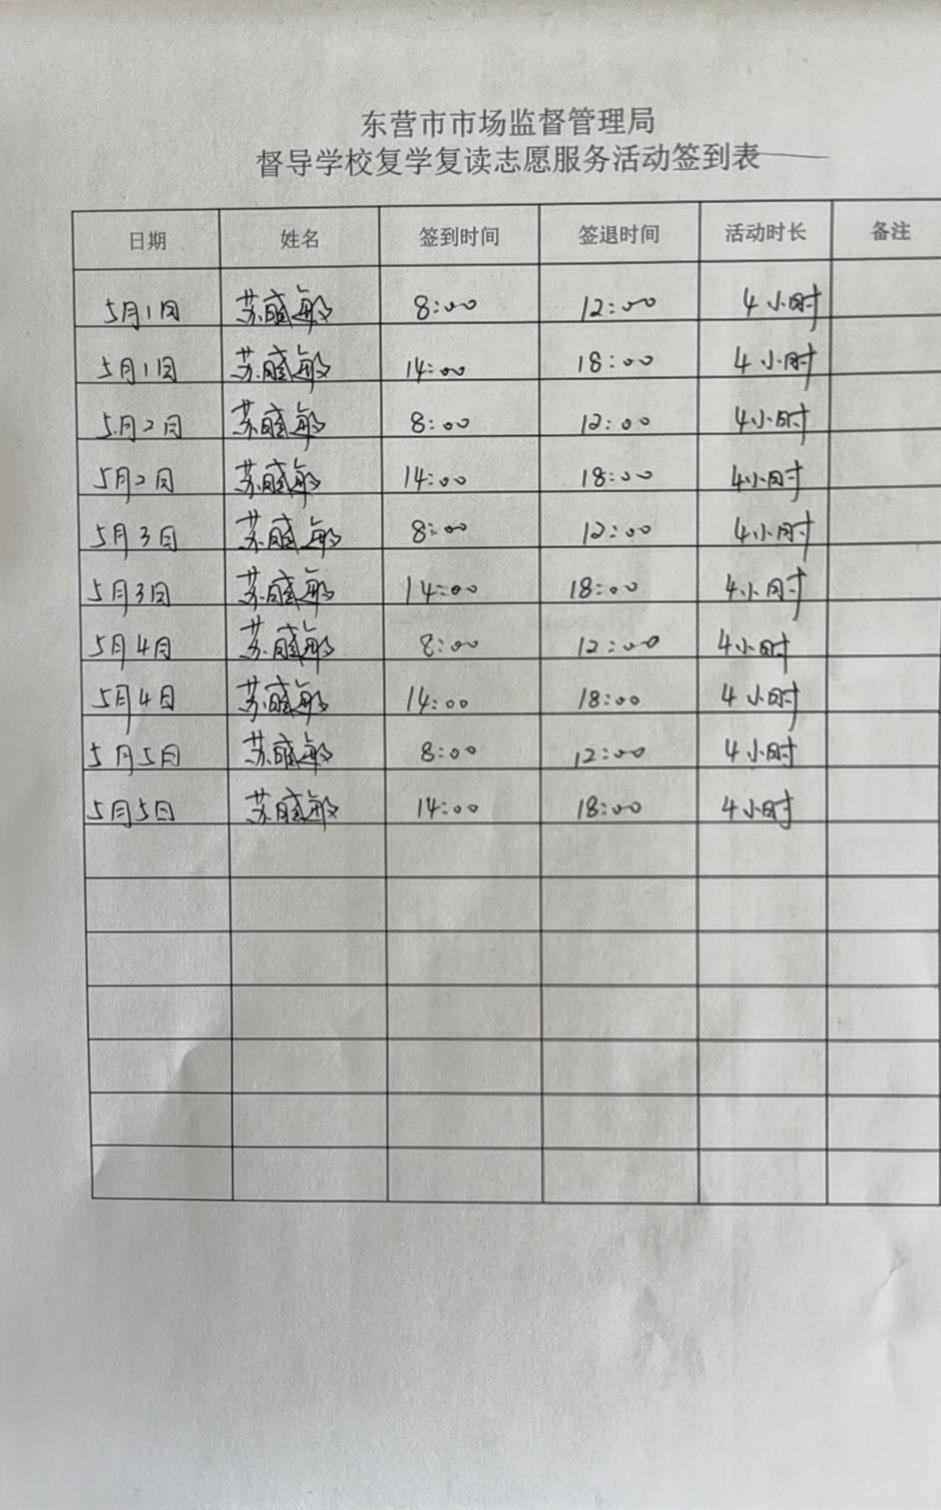 东营市市场监督管理局
督导学校复学复读志愿服务活动签到表
日期 姓名 签到时间 签退时间 活动时长 备注
5月1日 苏盛敏 8:00 12:00 4小时
5月1日 苏盛敏 14:00 18:00 4小时
5月2日 苏盛敏 8:00 12:00 4小时
5月2日 苏盛敏 14:00 18:00 4小时
5月3日 苏盛敏 8:00 12:00 4小时
5月3日 苏盛敏 14:00 18:00 4小时
5月4日 苏盛敏 8:00 12:00 4小时
5月4日 苏盛敏 14:00 18:00 4小时
5月5日 苏盛敏 8:00 12:00 4小时
5月5日 苏盛敏 14:00 18:00 4小时